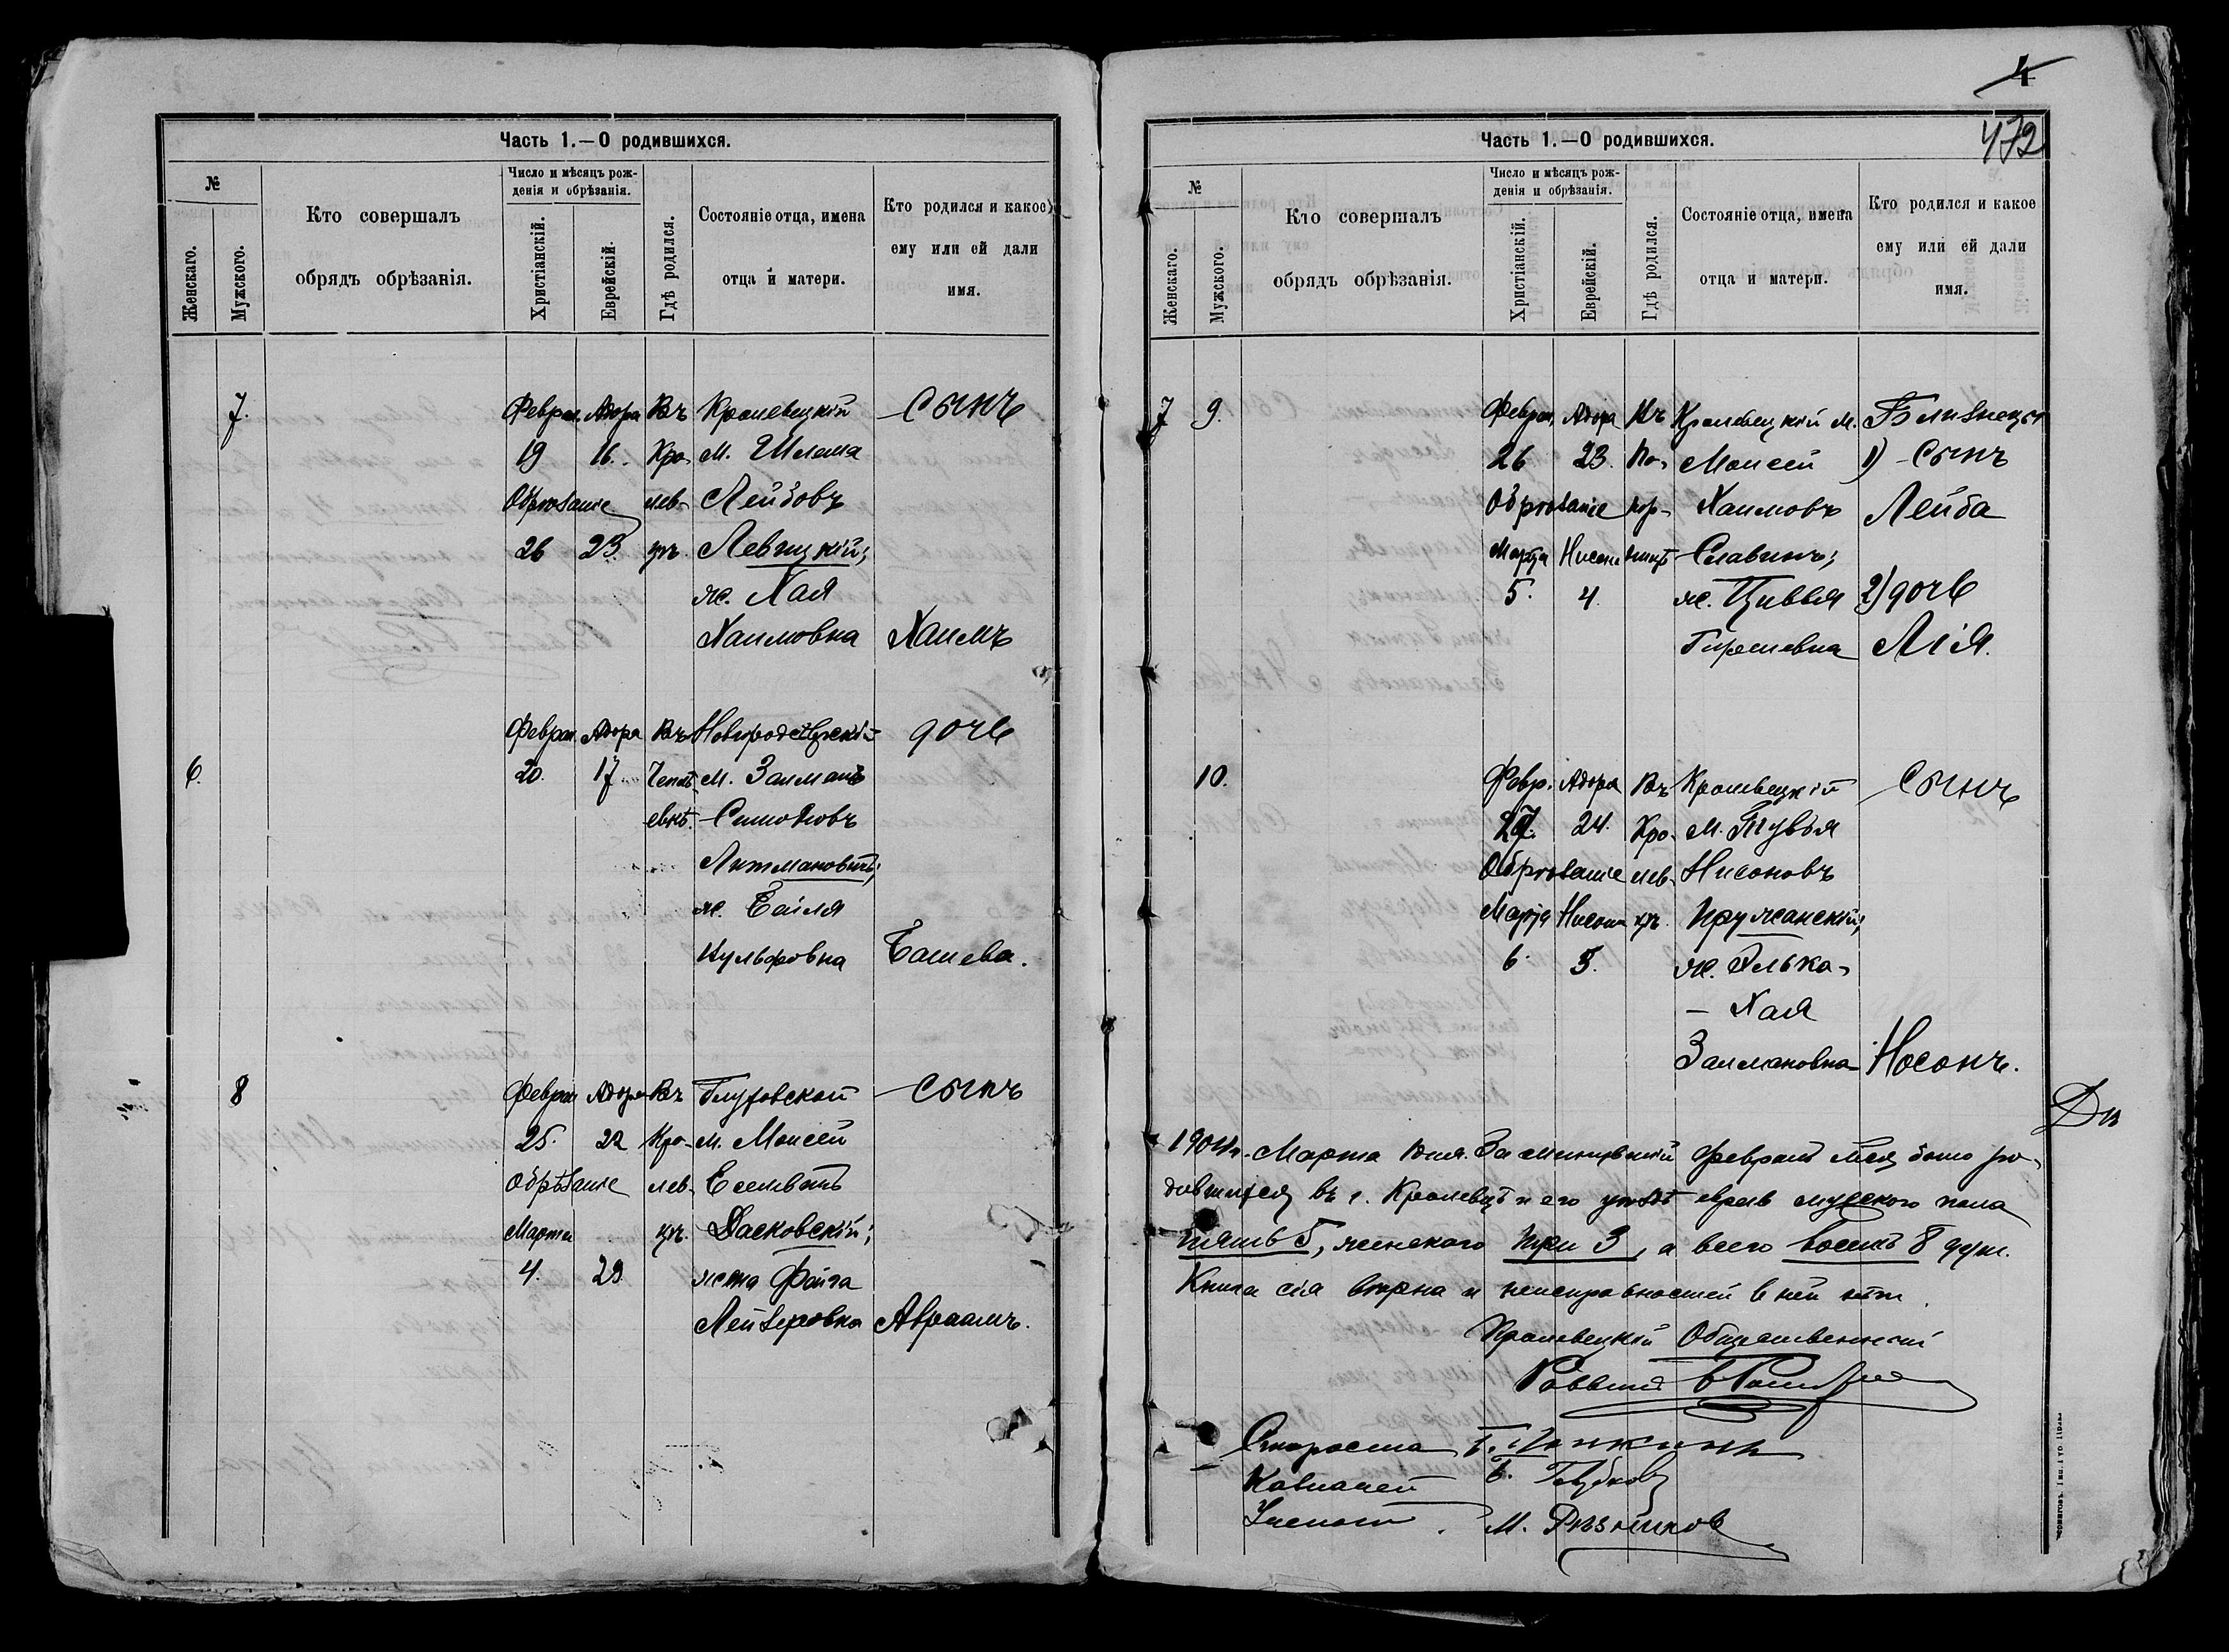 Часть 1.—О родившихся.
№
Женскаго.
Мужского.
Кто совершалъ
обрядъ обрѣзанія.
Число и мѣсяцъ рож-
денія и обрѣзанія.
Христіанскій.
Еврейскій.
Гдѣ родился.
Состояніе отца, имена
отца и матери.
Кто родился и какое
ему или ей дали
имя.
7. Феврал. Адора Въ Кролевецкій Сынъ
19 16. Кро- м. Шлема
Обрѣзаніе лев- Лейбовъ
26 23. цѣ. Левицкій;
ж. Хая
Хаимовна Хаимъ
Феврал. Адора Въ Новгородсѣверскій дочь
6. 20. 17 м. Залманъ
Симоновъ
Литмановичъ;
ж. Бейля
Вульфовна Башева.
8 Феврал Адора Въ Глуховской Сынъ
25. 22 Кро- м. Моисей
Обрѣзаніе лев-
Марта цѣ.
4. 29 жена Фейга
Лейзеровна Авраамъ.
4
472
Часть 1.—О родившихся.
№
Женскаго.
Мужского.
Кто совершалъ
обрядъ обрѣзанія.
Число и мѣсяцъ рож-
денія и обрѣзанія.
Христіанскій.
Еврейскій.
Гдѣ родился.
Состояніе отца, имена
отца и матери.
Кто родился и какое
ему или ей дали
имя.
7 9. Феврал. Адора Въ Кролевецкій м. Близнецы
26 23. Моисей 1) Сынъ
Обрѣзаніе Хаимовъ Лейба
Марта Нисона Славинъ;
5. 4. ж. Цивья 2) дочь
Гиршевна Лія.
10. Февр. Адора Въ Кролевецкій Сынъ
27. 24. Кро- м. Тувья
Обрѣзаніе лев- Нисоновъ
Марта Нисона цѣ. Пружанскій;
6. 5. ж. Элька-
– Хая
Залмановна Носонъ.
1904 г. Марта дня. За минувшій Февраль мѣсяцъ было ро-
дившихся въ г. Кролевцѣ и его уѣздѣ евреевъ мужского пола
пять 5, женскаго три 3, а всего восемь 8 душ.
Книга сія вѣрна и неисправностей в ней нѣтъ.
Кролевецкій Общественный
Раввинъ
Староста
Казначей
Ученый. М. Рѣзниковъ